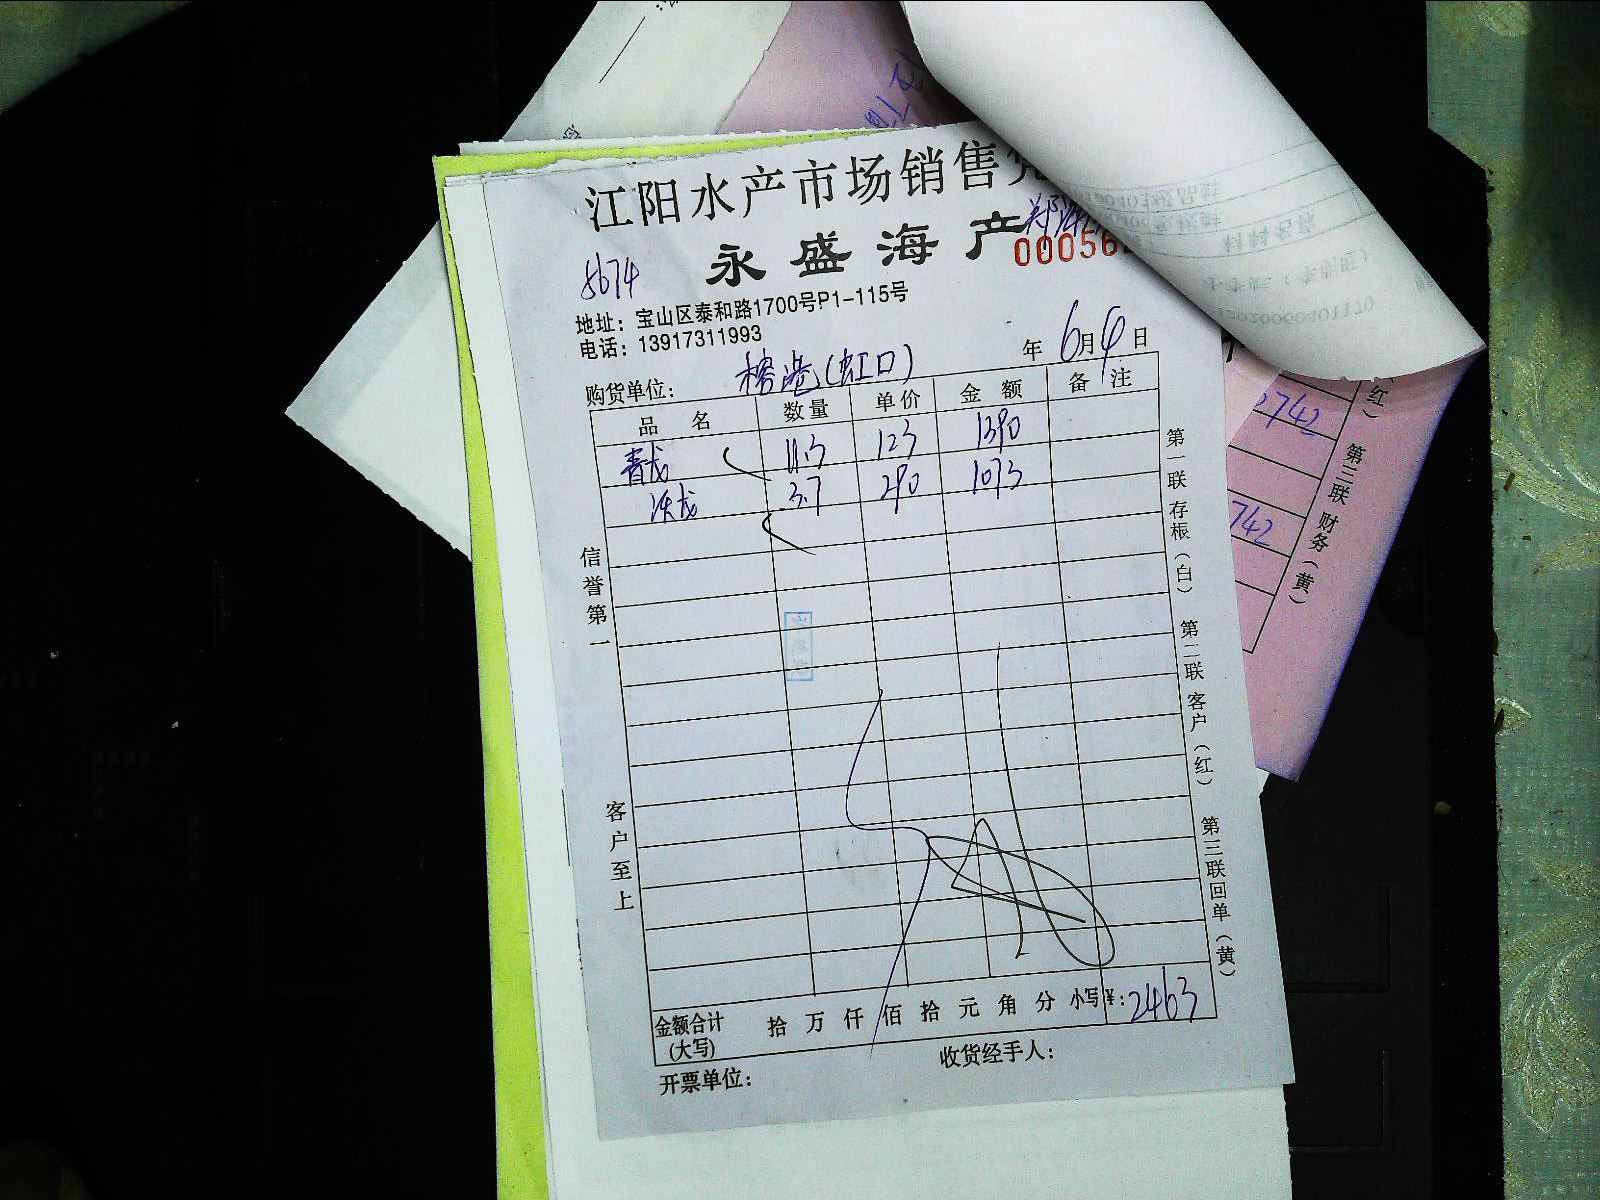 江阳水产市场销售凭
永盛海产
00056
8674
地址：宝山区泰和路1700号P1-115号
电话：13917311993
年 6月4日
购货单位： 榕港（虹口）
品名 数量 单价 金额 备注
青龙 11.3 123 1390
沃龙 3.7 290 1073
信誉第一
客户至上
第一联存根（白） 第二联客户（红） 第三联回单（黄）
金额合计（大写） 拾 万 仟 佰 拾 元 角 分 小写￥：2463
开票单位： 收货经手人：
742
742
第三联 财务（黄）
（红）
材料名称